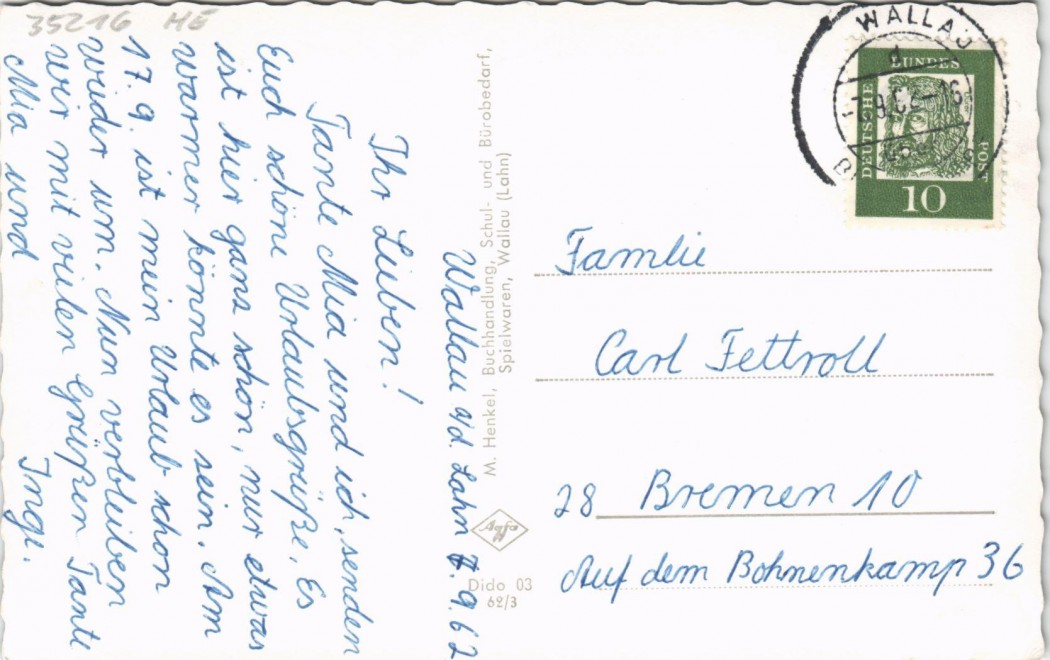 35216 ME
Wallau a/d. Lahn 7.9.62
Ihr Lieben!
Tante Mia und ich, senden
Euch schöne Urlaubsgrüße. Es
ist hier ganz schön, nur etwas
warmer könnte es sein. Am
17.9. ist mein Urlaub schon
wieder um. Nun verbleiben
wir mit vielen Grüßen Tante
Mia und Inge.
M. Henkel, Buchhandlung, Schul- und Bürobedarf,
Spielwaren, Wallau (Lahn)
Agfa
Dido 03
62/3
WALLAU
DEUTSCHE BUNDES POST
10
Familie
Carl Fettroll
28 Bremen 10
Auf dem Bohnenkamp 36